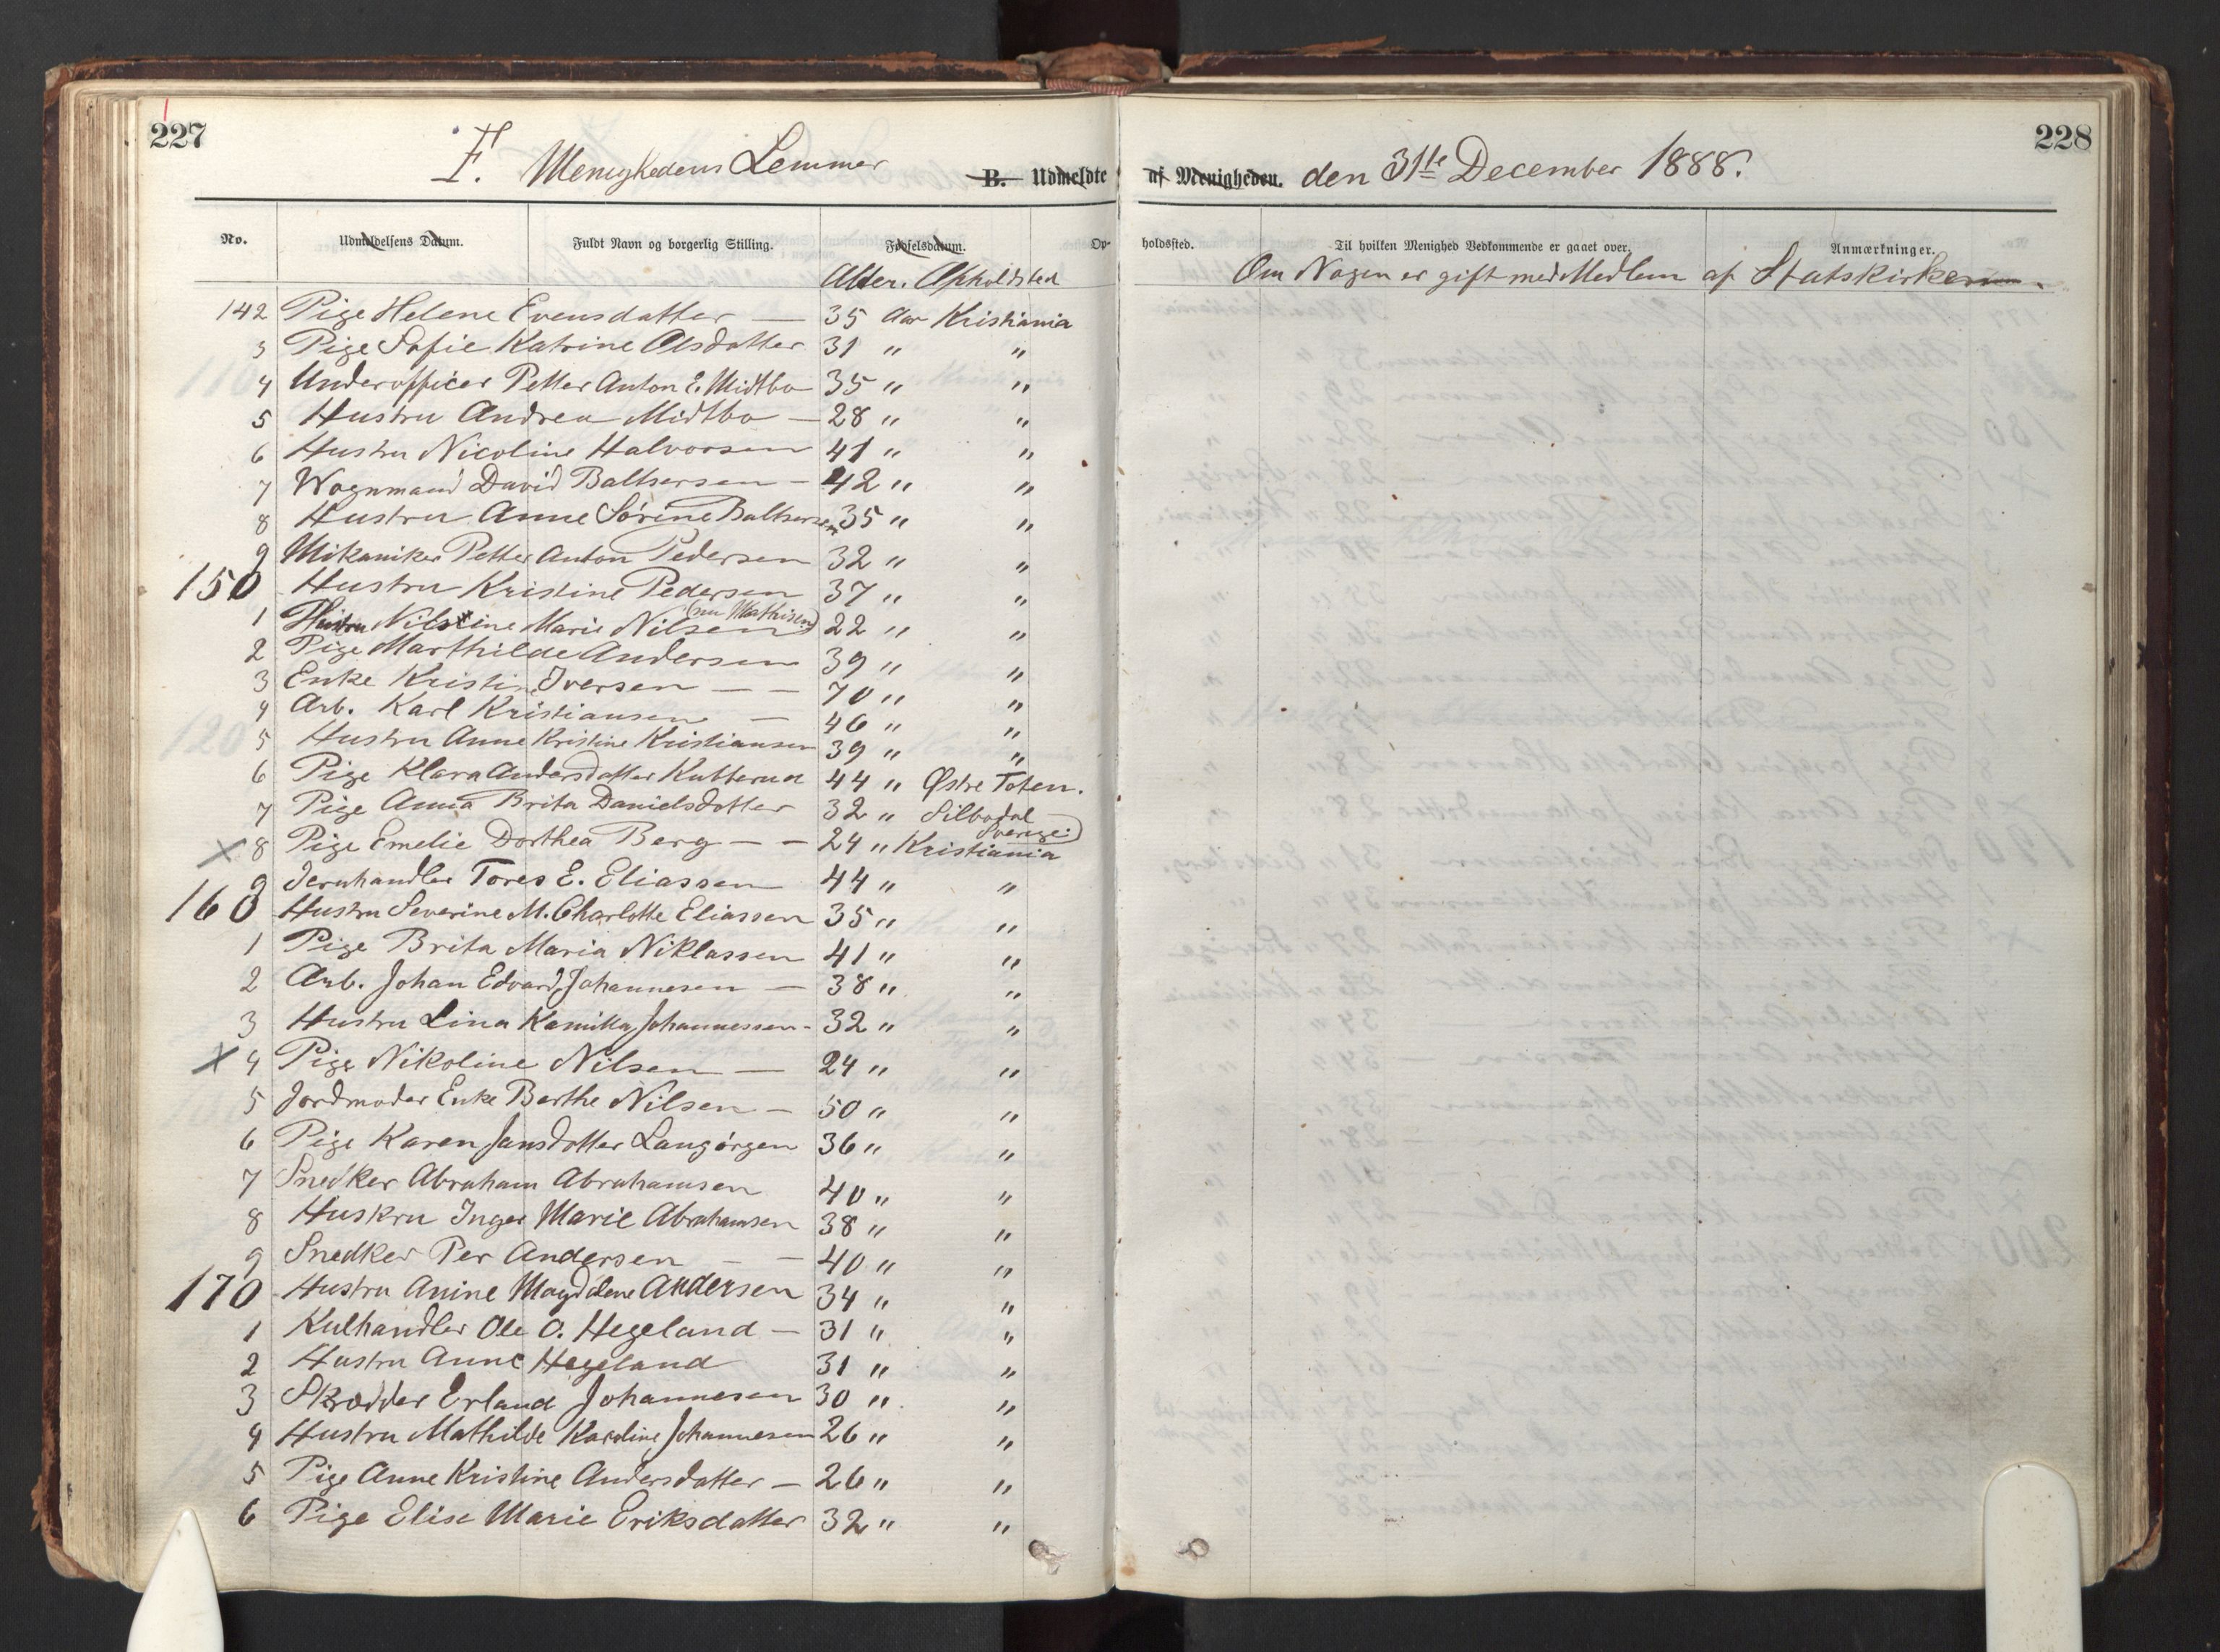 227
F. Menighedens Lemmer B. Udmeldte
No. Udmeldelsens Datum. Fuldt Navn og borgerlig Stilling. Fødselsdatum. Op-
Alder. Opholdsted
142 Pige Helene Evensdatter — 35 Aar Kristiania
3 Pige Sofie Katrine Olsdatter 31 " "
4 Underofficer Petter Anton E. Midtbo 35 " "
5 Hustru Andrea Midtbo — 28 " "
6 Hustru Nicoline Halvorsen 41 " "
7 Wognmand David Baltsersen — 42 " "
8 Hustru Anne Sørine Baltsersen 35 " "
9 Mikaniker Petter Anton Pedersen 32 " "
150 Hustru Kristine Pedersen 37 " "
1 Hustru Nilsine Marie Nilsen (nu Mathisen) 22 " "
2 Pige Marthilde Andersen 39 " "
3 Enke Kristin Iversen — — 70 " "
4 Arb. Karl Kristiansen — 46 " "
5 Hustru Anne Kristine Kristiansen 39 " "
6 Pige Klara Andersdatter Kutterud 44 " Østre Toten.
7 Pige Anna Brita Danielsdotter 32 " Silbodal Sverige)
X 8 Pige Emelie Dorthea Berg — — 24 " Kristiania
9 Jernhandler Tores E. Eliassen 44 " "
160 Hustru Severine M. Charlotte Eliassen 35 " "
1 Pige Brita Maria Niklassen 41 " "
2 Arb. Johan Edvard Johannesen — 38 " "
3 Hustru Lina Kamilla Johannessen - 32 " "
X 4 Pige Nikoline Nilsen — 24 " "
5 Jordmoder Enke Berthe Nilsen — 50 " "
6 Pige Karen Jansdotter Langørgen 36 " "
7 Snedker Abraham Abrahamsen 40 " "
8 Huskru Inger Marie Abrahamsen 38 " "
9 Snedker Per Andersen — — 40 " "
170 Hustru Anine Magdalene Andersen 34 " "
1 Kulhandler Ole O. Hegeland — 31 " "
2 Hustru Anne Hegeland 31 " "
3 Skrædder Erland Johannesen 30 " "
4 Hustru Mathilde Karoline Johannesen 26 " "
5 Pige Anne Kristine Andersdatter — 26 " "
6 Pige Elise Marie Eriksdatter 32 " "
228
af Menigheden. den 31te December 1888.
holdssted. Til hvilken Menighed Vedkommende er gaaet over. Anmærkninger.
Om Nogen er gift med Medlem af Statskirken.